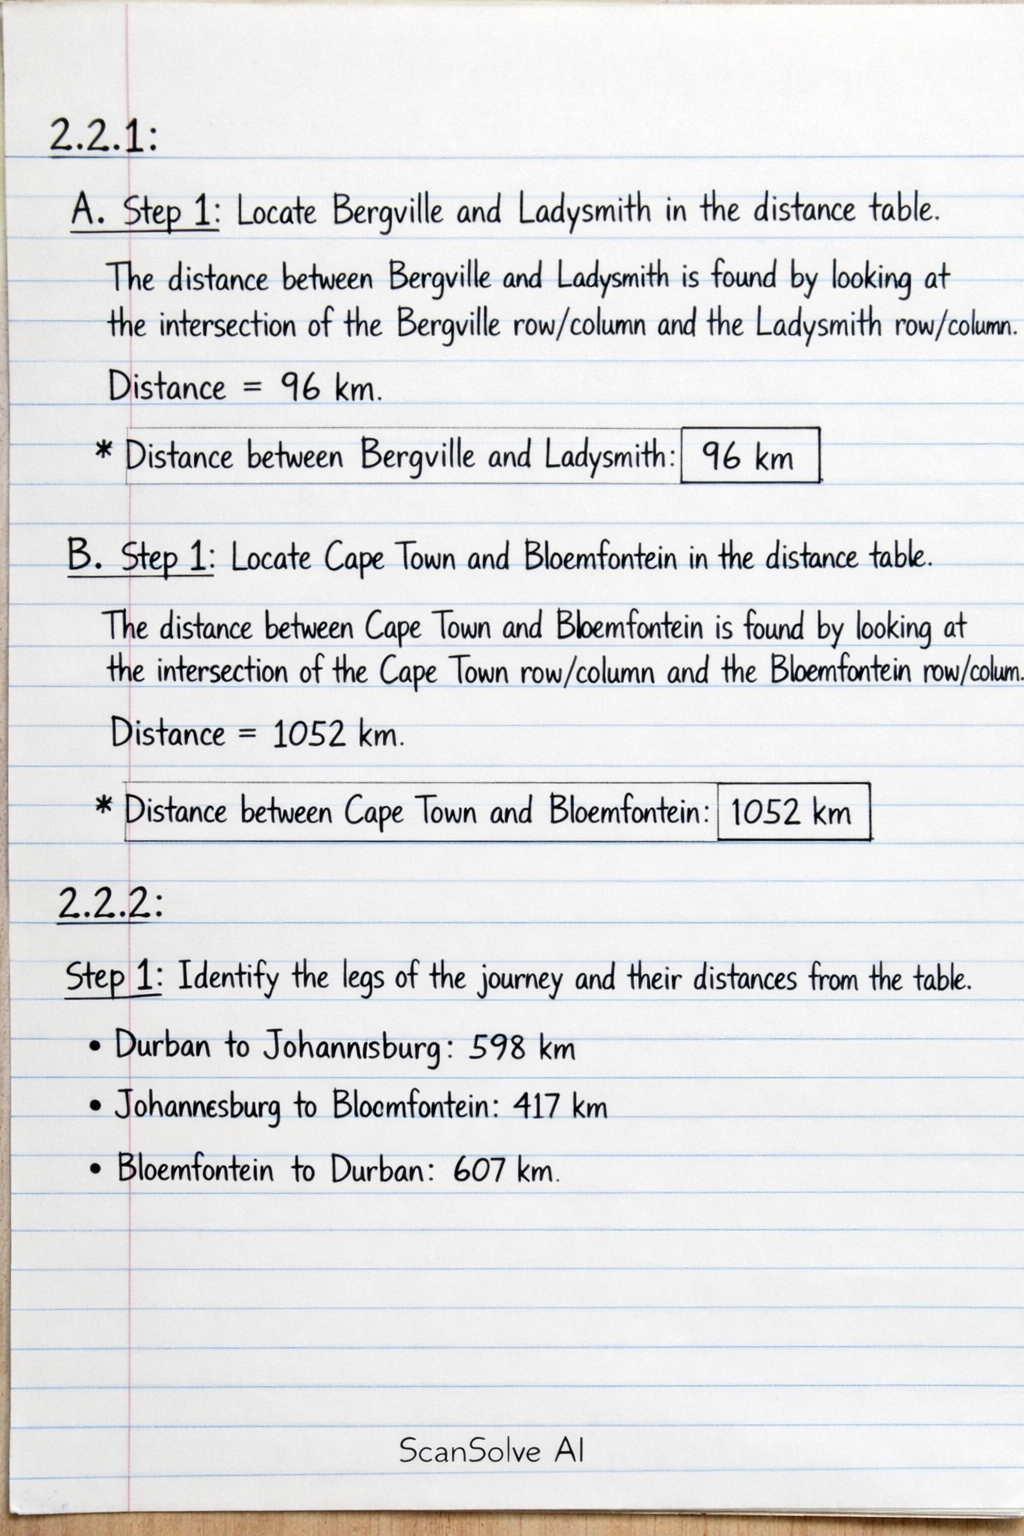 2.2.1:
A. Step 1: Locate Bergville and Ladysmith in the distance table.
The distance between Bergville and Ladysmith is found by looking at
the intersection of the Bergville row/column and the Ladysmith row/column.
Distance = 96 km.
* Distance between Bergville and Ladysmith: 96 km
B. Step 1: Locate Cape Town and Bloemfontein in the distance table.
The distance between Cape Town and Bloemfontein is found by looking at
the intersection of the Cape Town row/column and the Bloemfontein row/colum.
Distance = 1052 km.
* Distance between Cape Town and Bloemfontein: 1052 km
2.2.2:
Step 1: Identify the legs of the journey and their distances from the table.
• Durban to Johannısburg: 598 km
• Johannesburg to Blocmfontein: 417 km
• Bloemfontein to Durban: 607 km.
ScanSolve AI